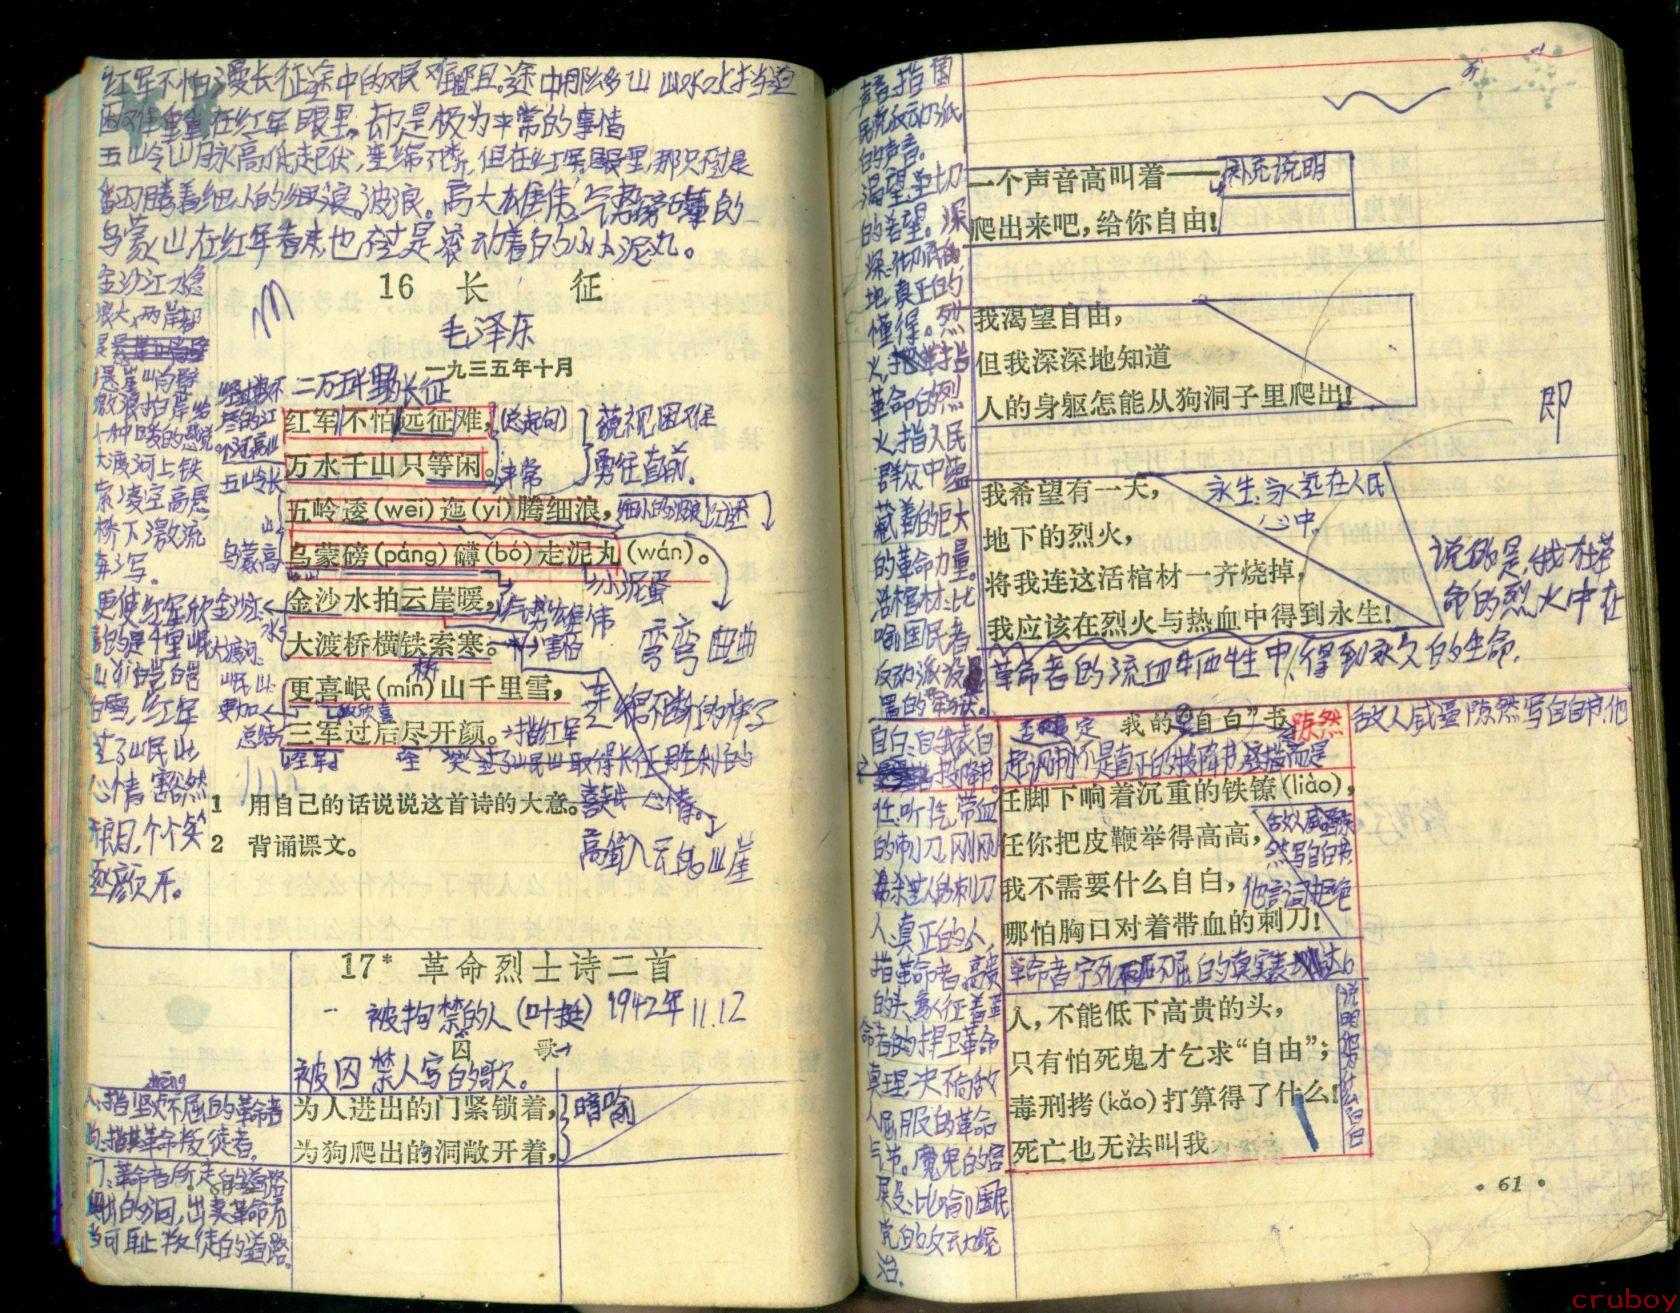 红军不怕漫长征途中的艰难险阻。途中那么多山山水水挡道
困难重重在红军眼里,却是极为平常的事情
五岭山脉高低起伏,连绵不断,但在红军眼里,那只不过是
翻腾着细小的细浪。波浪。高大雄伟,气势磅礴的
乌蒙山在红军看来也不过是滚动着的小小泥丸。
金沙江水急
浪大,两岸都
是
悬崖峭壁
激浪拍岸给
十种暖的感觉
大渡河上铁
索凌空高悬
桥下激流
奔泻。
更使红军欣
喜的是千里岷
山
白雪,红军
过了岷山
心情豁然
开朗,个个笑
逐颜开。
16 长 征
毛泽东
一九三五年十月
二万五千里长征
红军不怕远征难,
(总起句)
藐视困难
万水千山只等闲。
平常
勇往直前。
五岭长
五岭逶(wei)迤(yí)腾细浪,
细小的波浪
乌蒙高
乌蒙磅(páng)礴(bó)走泥丸(wán)。
小泥蛋
金沙水拍云崖暖,
气势雄伟
弯弯曲曲
大渡桥横铁索寒。
害怕
桥
更喜岷(mín)山千里雪,
连绵不断的样子
更加
欣喜
三军过后尽开颜。
指红军
总结
笑 过了岷山取得长征胜利的
喜悦心情。
1 用自己的话说说这首诗的大意。
2 背诵课文。
高耸入云的山崖
17* 革命烈士诗二首
一 被拘禁的人(叶挺) 1942年11.12
囚 歌
被囚禁人写的歌。
为人进出的门紧锁着,
暗喻
为狗爬出的洞敞开着,
人:指坚贞不屈的革命者
狗:指革命叛徒者。
门:革命者所走的道路
爬出的洞,出卖革命无
当可耻叛徒的道路。
声音:指国
民党反动派
的声音。
渴望:迫切
的希望。深
深:彻底
地,真正的
懂得。烈
火,指
革命的烈
火,指人民
群众中蕴
藏着的巨大
的革命力量。
活棺材:比
喻国民党
反动派设
置的牢狱。
一个声音高叫着——
补充说明
爬出来吧,给你自由!
我渴望自由,
但我深深地知道
人的身躯怎能从狗洞子里爬出!
即
我希望有一天,
永生:永远在人民
心中
地下的烈火,
将我连这活棺材一齐烧掉,
说的是:我在革
命的烈火中在
我应该在烈火与热血中得到永生!
革命者的流血牺牲中,得到永久的生命.
否定
我的“自白”书
陈然
敌人威逼陈然写自白书,他
自白:自我表白
投降书
任:听凭,带血
的刺刀,刚刚
杀过人的刺刀
人:真正的人,
指革命者,高贵
的头,象征着革
命者的捍卫革命
真理,决不向敌
人屈服的革命
气节。魔鬼的宫
殿:比喻国民
党的反动统
治。
任脚下响着沉重的铁镣(liào),
任你把皮鞭举得高高,
敌人威逼陈
然写自白书,
我不需要什么自白,
他言词拒绝
哪怕胸口对着带血的刺刀!
人,不能低下高贵的头,
只有怕死鬼才乞求“自由”;
毒刑拷(kǎo)打算得了什么!
死亡也无法叫我
说明他为什么自白
• 61 •
cruboy